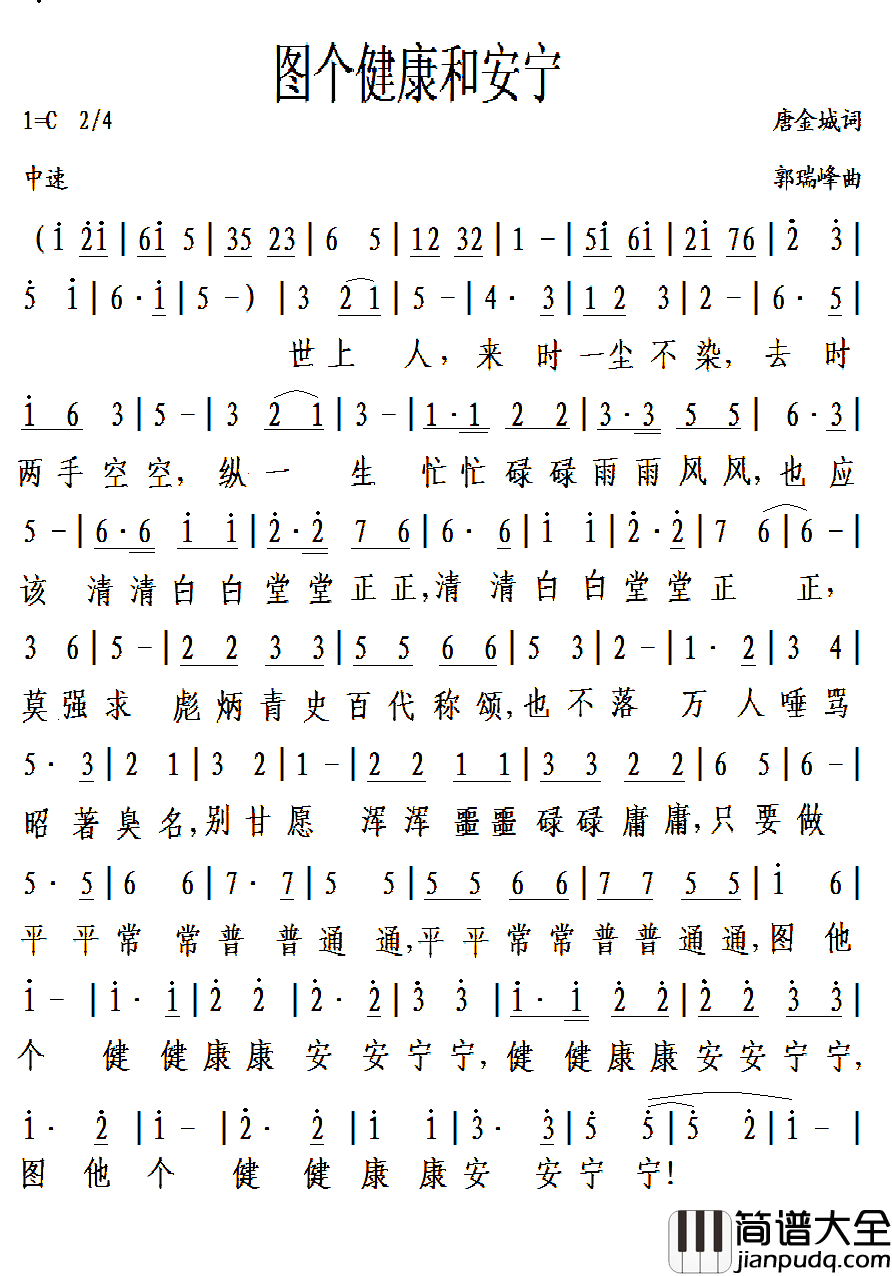 图个健康和安宁
1=C 2/4 唐金城词
中速 郭瑞峰曲
(i̇ 2̇i̇|6i̇ 5|35 23|6 5|12 32|1 -|5i̇ 6i̇|2̇i̇ 76|2̇ 3̇|
5̇ i̇|6·i̇|5 -)|3 21|5 -|4· 3|12 3|2 -|6· 5|
世上人，来时一尘不染，去时
i̇ 6 3|5 -|3 21|3 -|1·1 2 2|3·3 5 5|6·3|
两手空空，纵一生忙忙碌碌雨雨风风，也应
5 -|6·6 i̇ i̇|2̇·2̇ 7 6|6· 6|i̇ i̇|2̇·2̇|7 6|6 -|
该清清白白堂堂正正，清清白白堂堂正正，
3 6|5 -|2 2 3 3|5 5 6 6|5 3|2 -|1· 2|3 4|
莫强求彪炳青史百代称颂，也不落万人唾骂
5· 3|2 1|3 2|1 -|2 2 1 1|3 3 2 2|6 5|6 -|
昭著臭名，别甘愿浑浑噩噩碌碌庸庸，只要做
5· 5|6 6|7· 7|5 5|5 5 6 6|7 7 5 5|i̇ 6|
平平常常普普通通，平平常常普普通通，图他
i̇ -|i̇· i̇|2̇ 2̇|2̇· 2̇|3̇ 3̇|i̇· i̇ 2̇ 2̇|2̇ 2̇ 3̇ 3̇|
个健健康康安安宁宁，健健康康安安宁宁，
i̇· 2̇|i̇ -|2̇· 2̇|i̇ i̇|3̇· 3̇|5̇ 5̇|5̇ 2̇|i̇ -|
图他个健健康康安安宁宁！
简谱大全
jianpudq.com